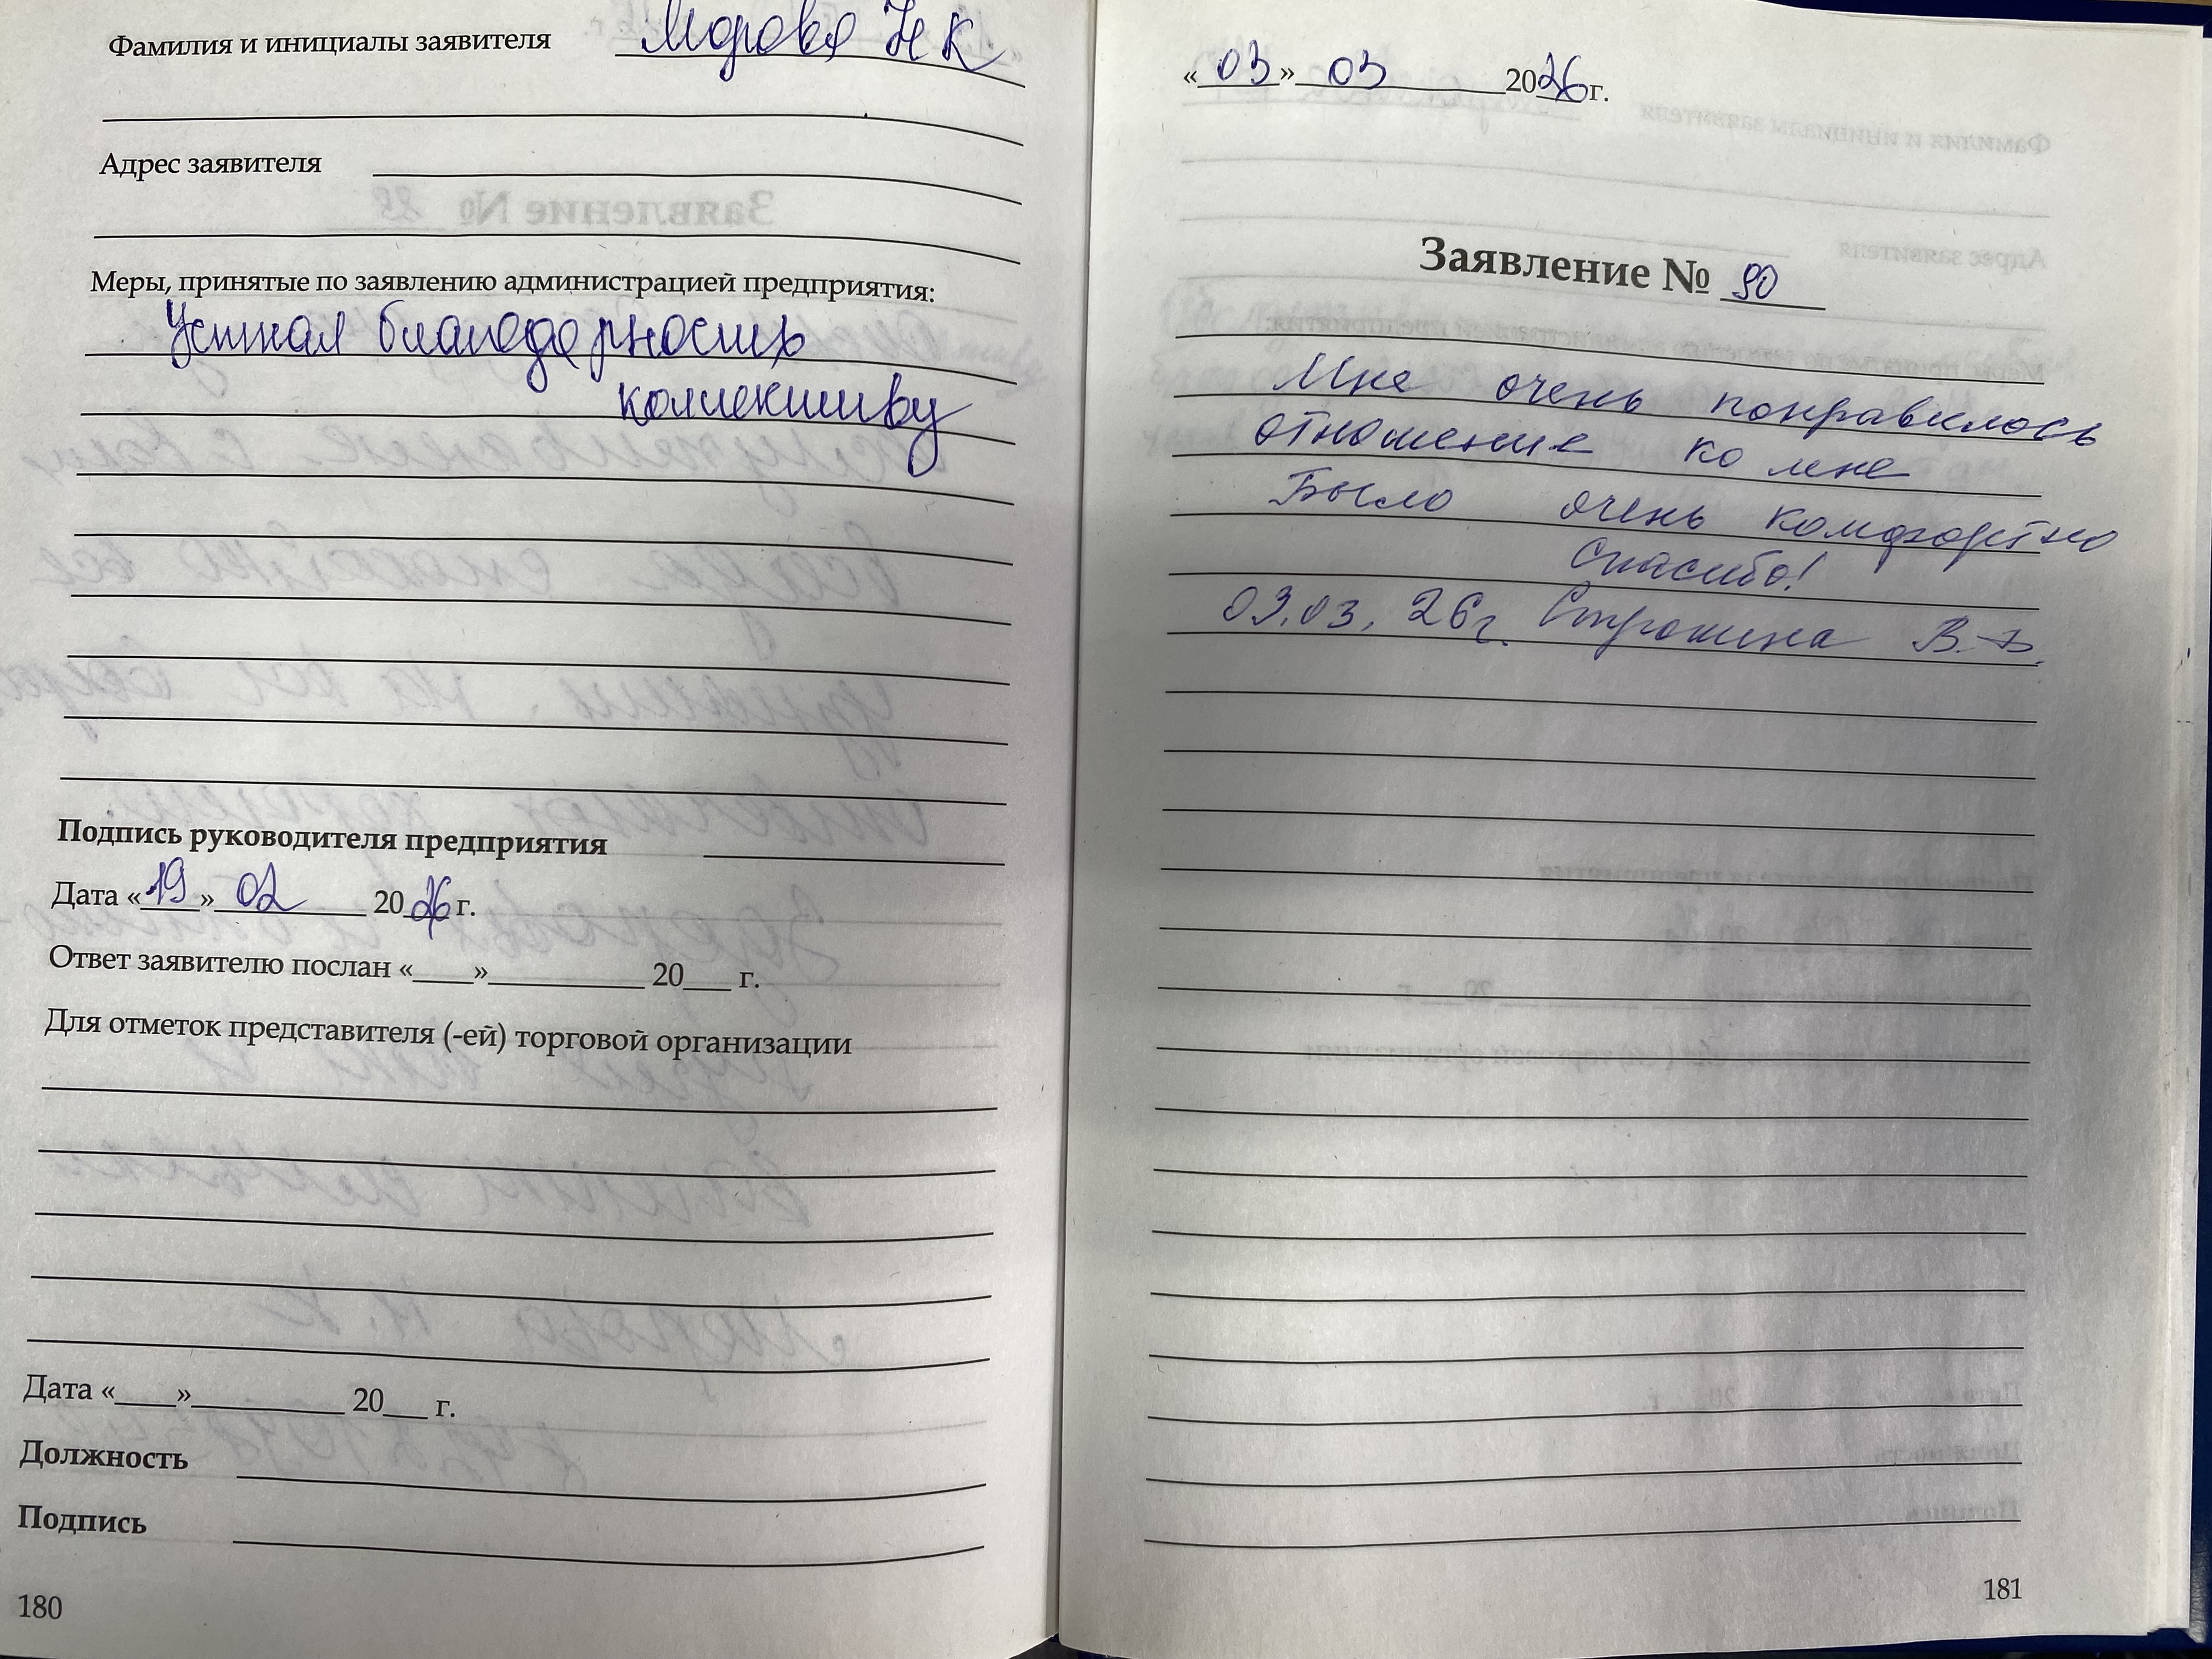 Фамилия и инициалы заявителя Морова Н К
Адрес заявителя
Меры, принятые по заявлению администрацией предприятия:
Устная благодарность
коллективу
Подпись руководителя предприятия
Дата «19» 02 2026 г.
Ответ заявителю послан «___»__________ 20___ г.
Для отметок представителя (-ей) торговой организации
Дата «___»__________ 20___ г.
Должность
Подпись
180
«03» 03 2026 г.
Заявление № 90
Мне очень понравилось
отношение ко мне
Было очень комфортно
Спасибо!
03.03.26г. В.
181